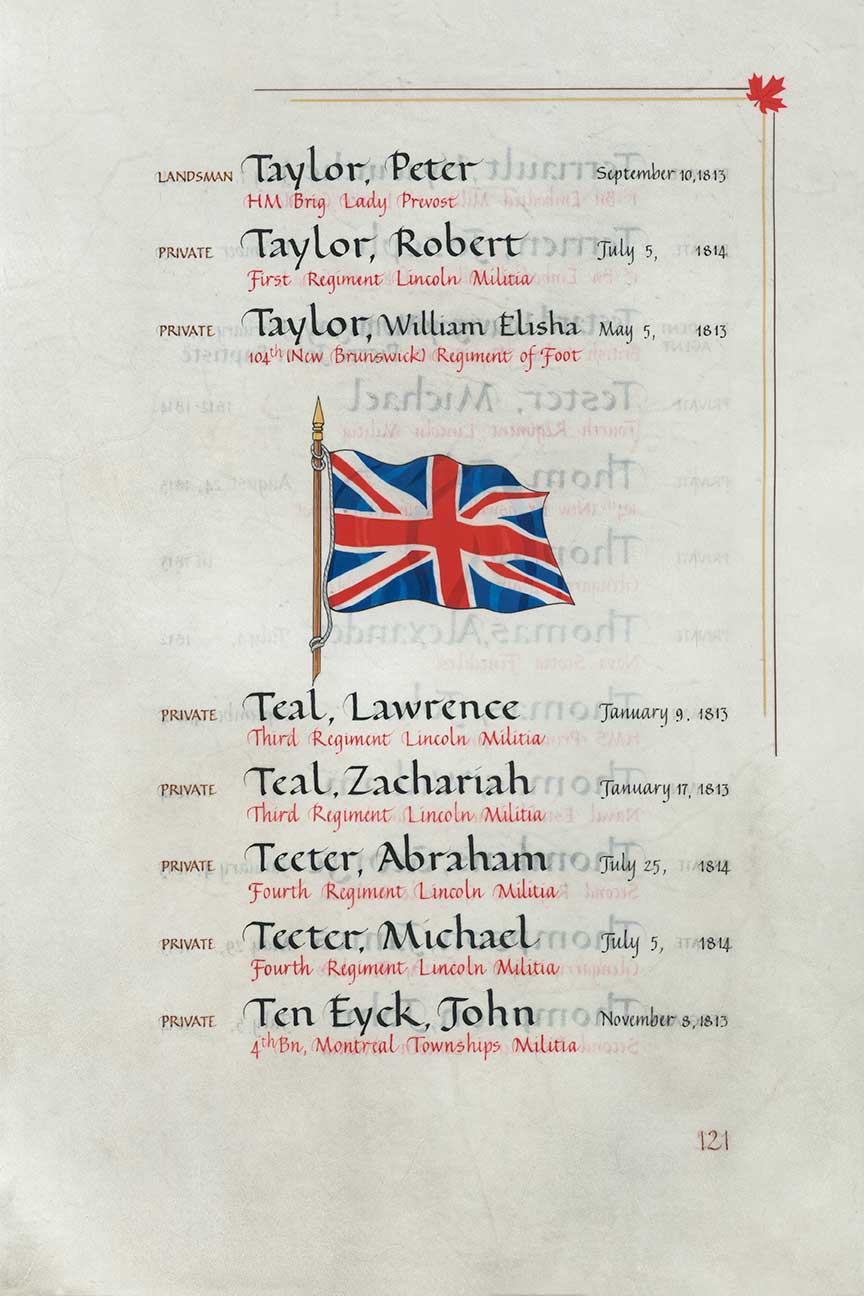 LANDSMAN Taylor, Peter September 10, 1813
HM Brig Lady Prevost
PRIVATE Taylor, Robert July 5, 1814
First Regiment Lincoln Militia
PRIVATE Taylor, William Elisha May 5, 1813
104th (New Brunswick) Regiment of Foot
PRIVATE Teal, Lawrence January 9, 1813
Third Regiment Lincoln Militia
PRIVATE Teal, Zachariah January 17, 1813
Third Regiment Lincoln Militia
PRIVATE Teeter, Abraham July 25, 1814
Fourth Regiment Lincoln Militia
PRIVATE Teeter, Michael July 5, 1814
Fourth Regiment Lincoln Militia
PRIVATE Ten Eyck, John November 8, 1813
4th Bn, Montreal Townships Militia
121